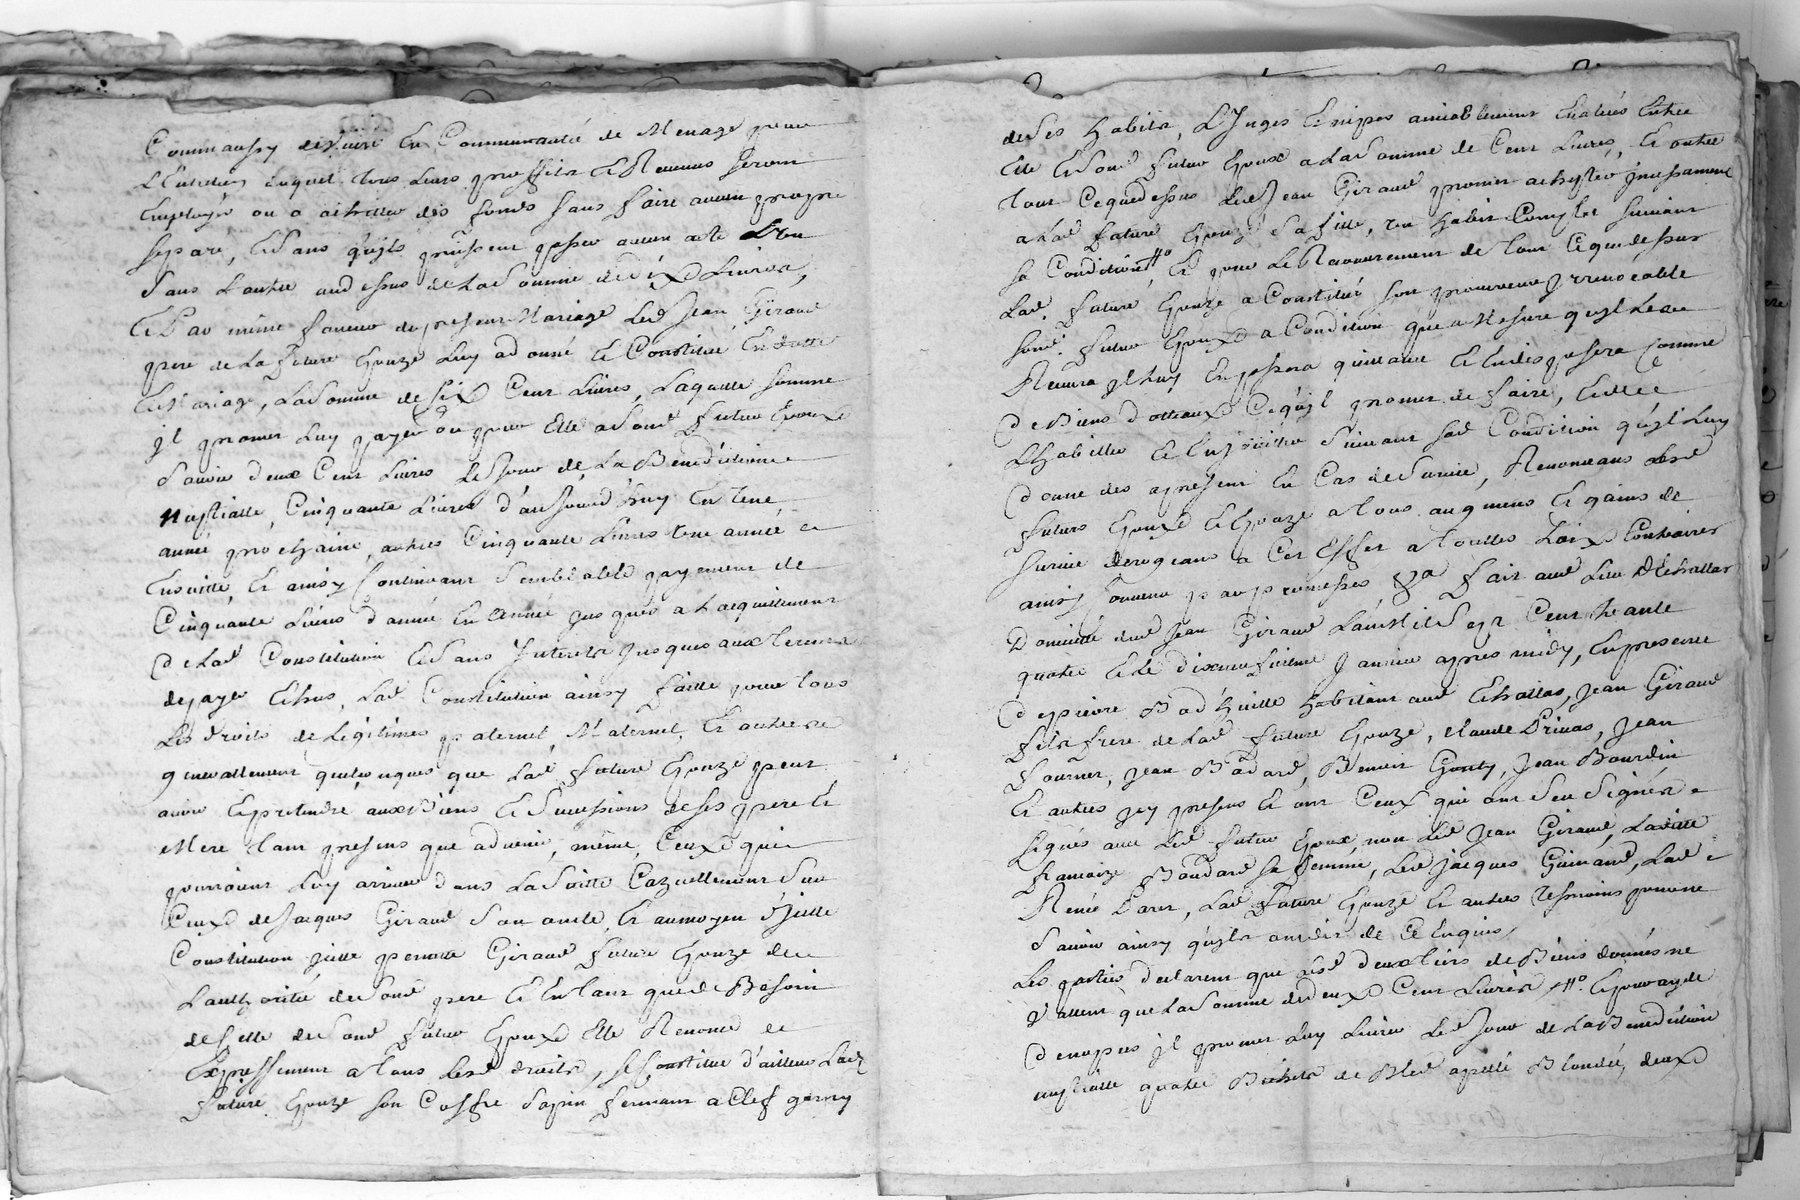 Comm aussy de vivre En Communauté de Menage pour
L'Entretien duquel tous leurs proffits Et Revenus seront
Employés ou a achetter des fonds sans faire aucun propre
separé, Et sans qu'ils puissent passer aucun acte L'un
sans L'autre audessus de La Somme de dix Livres,
Et Par même faveur du present Mariage Led Jean Giraud
pere de La future Epouze Luy a donné Et Constitué En dotte
Et Mariage, La Somme de Six Cent Livres, Laquelle somme
jl promet Luy payer ou pour Elle a Soud futur Epoux
Savoir deux Cent Livres Le Jour de La Benediction
Nuptialle, Cinquante Livres d'aujourd'huy En une
année prochaine, autres Cinquante Livres une année
Ensuitte, Et ainsy Continuant Semblable payement de
Cinquante Livres d'année En année jusques a L'acquittement
De Lad Constitution Et Sans Interets jusques aux termes
de payer Echus, Lad Constitution ainsy faitte pour tous
Les droits de Legitimes paternel, Maternel, Et autres
generallement quelconques que Lad future Epouze peut
avoir Et pretendre aux Biens Et Successions de ses pere Et
Mere tant presens que advenir, même, Ceux qui
pourroient Luy arriver dans La Suitte Cazuellement Sur
Ceux de Jacques Giraud Son oncle, Et au moyen d'jcelle
Constitution jcelle Giraud future Epouze de
L'authorité de Soud pere Et En tant que de Besoin
de Celle de Soud futur Epoux Elle Renonce
Expressement a tous Lesd droits, Se Constitue d'ailleurs Lad
future Epouze son Coffre Sapin fermant a Clef garny
de Ses habits, Linges Et nipes amiablement Evalués Entre
Elle Et Soud futur Epoux a La Somme de Cent Livres, Et outre
tout Ce que dessus Led Jean Giraud promet achepter jncessament
a Lad future Epouze Sa fille, un habit Complet Suivant
sa Condition, Et pour Le Recouvrement de tout Ce que dessus
Lad. future Epouze a Constitué son procureur Irrevocable
Soud. futur Epoux a Condition que a Mesure qu'il Le
Recevra jl Luy En passera quittance Et En disposera Comme
De Biens dotteaux Ce qu'jl promet de faire,
L'habiller Et Suivant Sad Condition qu'jl Luy
Donne des apresent En Cas de Survie, Renonceans Lesd
futurs Epoux Et Epouze a tous augmens Et gains de
Survie derogeans a Cet Effet a touttes Loix Contraires
ainsy Convenu par promesses, &a fait aud Lieu d'Echallas
Domicile dud Jean Giraud L'an Mil Sept Cent trante
quatre Et Le dixneufvieme Janvier apres midy, En presence
De pierre Badhuille habitant aud Echallas, Jean Giraud
fils frere de Lad future Epouze, Claude Privas, Jean
fournier, Jean Bodard, Benoit Gonty, Jean Bourdin
Et autres jcy presens Et ont Ceux qui ont Sçu Signés
Signés avec Led futur Epoux non Led Jean Giraud, Laditte
francoize Bodard sa femme, Led Jacques Guinand, Lad
Renée Larer, Lad future Epouze Et autres Tesmoins pour ne
Savoir ainsy qu'jls ont dit de Ce Enquis
Les parties declarent que Lesd deux tiers de Biens donnés ne
Vallent que La Somme de deux Cent Livres
jl promet Luy Livrer Led Jour de La Benediction
nuptialle quatre Bichets de Bled apellé Blondée, deux